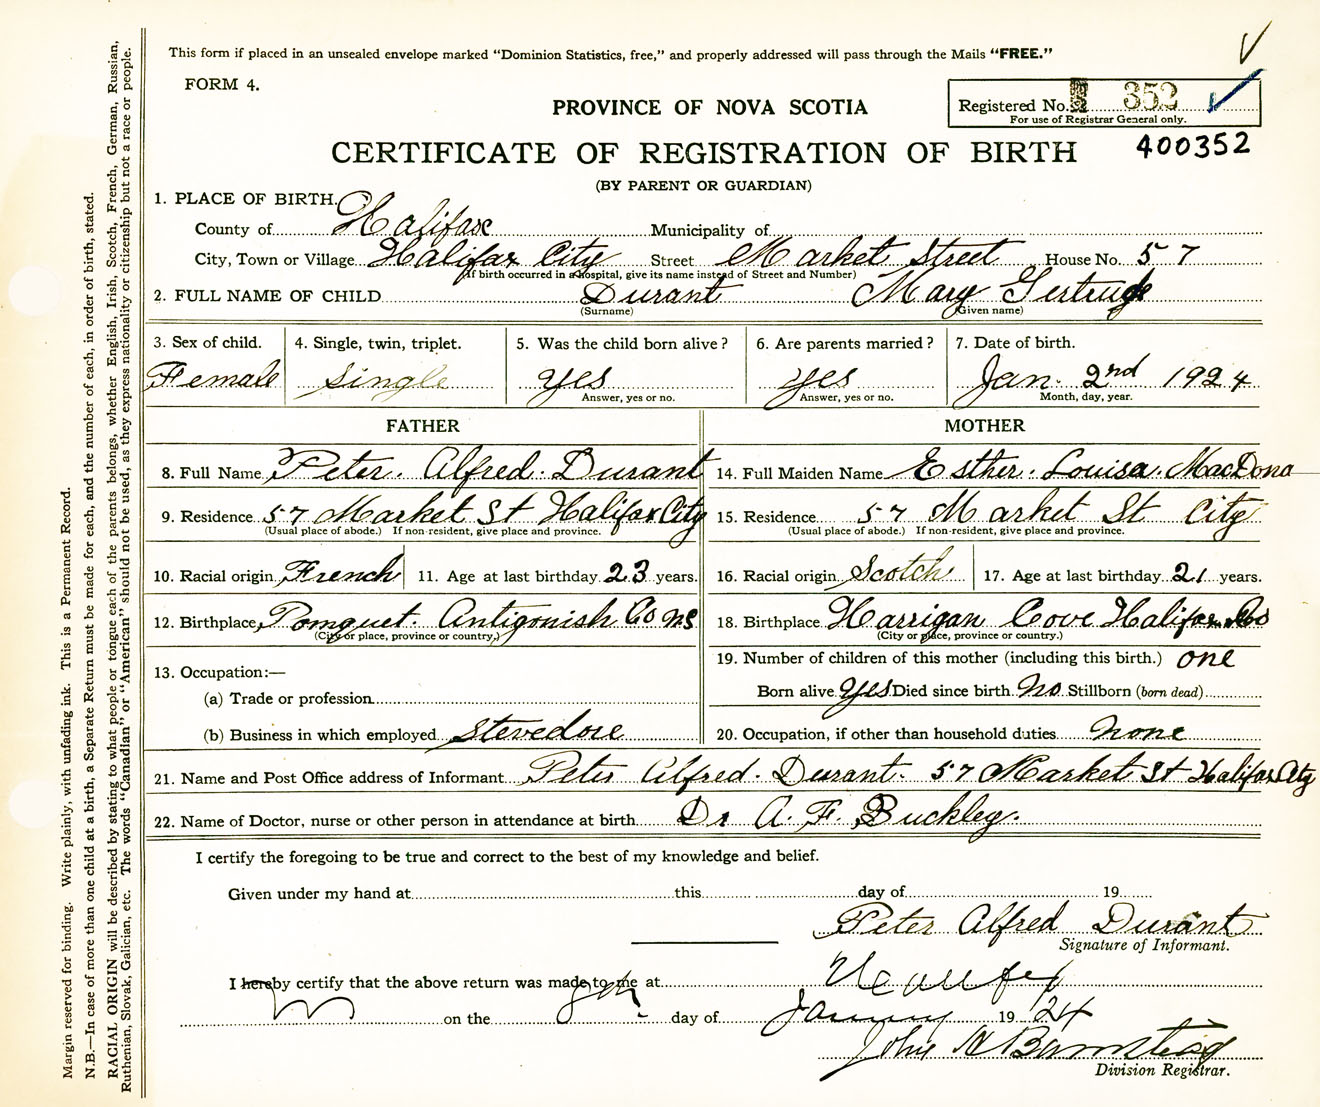 This form if placed in an unsealed envelope marked "Dominion Statistics, free," and properly addressed will pass through the Mails "FREE."
FORM 4.
PROVINCE OF NOVA SCOTIA
Registered No. 352
For use of Registrar General only.
CERTIFICATE OF REGISTRATION OF BIRTH
400352
(BY PARENT OR GUARDIAN)
1. PLACE OF BIRTH.
County of Halifax Municipality of
City, Town or Village Halifax City Street Market Street House No. 57
(If birth occurred in a Hospital, give its name instead of Street and Number)
2. FULL NAME OF CHILD Durant Mary Gertrude
(Surname) (Given name)
3. Sex of child. 4. Single, twin, triplet. 5. Was the child born alive? 6. Are parents married? 7. Date of birth.
Female Single yes yes Jan. 2nd 1924
Answer, yes or no. Answer, yes or no. Month, day, year.
FATHER MOTHER
8. Full Name Peter. Alfred. Durant 14. Full Maiden Name Esther. Louisa. MacDona
9. Residence 57 Market St Halifax City 15. Residence 57 Market St City
(Usual place of abode.) If non-resident, give place and province. (Usual place of abode.) If non-resident, give place and province.
10. Racial origin French 11. Age at last birthday 23 years. 16. Racial origin Scotch 17. Age at last birthday 21 years.
12. Birthplace Pomquet. Antigonish Co NS 18. Birthplace Harrigan Cove Halifax Co
(City or place, province or country.) (City or place, province or country.)
13. Occupation:— 19. Number of children of this mother (including this birth.) one
(a) Trade or profession Born alive yes Died since birth No Stillborn (born dead)
(b) Business in which employed Stevedore 20. Occupation, if other than household duties None
21. Name and Post Office address of Informant Peter Alfred. Durant. 57 Market St Halifax City
22. Name of Doctor, nurse or other person in attendance at birth Dr A. F. Buckley.
I certify the foregoing to be true and correct to the best of my knowledge and belief.
Given under my hand at this day of 19
Peter Alfred Durant
Signature of Informant.
I hereby certify that the above return was made to me at Halifax
on the day of January 1924
John H Barnstead
Division Registrar.
Margin reserved for binding. Write plainly, with unfading ink. This is a Permanent Record.
N.B.—In case of more than one child at a birth, a Separate Return must be made for each, and the number of each, in order of birth, stated.
RACIAL ORIGIN will be described by stating to what people or tongue each of the parents belongs, whether English, Irish, Scotch, French, German, Russian,
Ruthenian, Slovak, Galician, etc. The words "Canadian" or "American" should not be used, as they express nationality or citizenship but not a race or people.